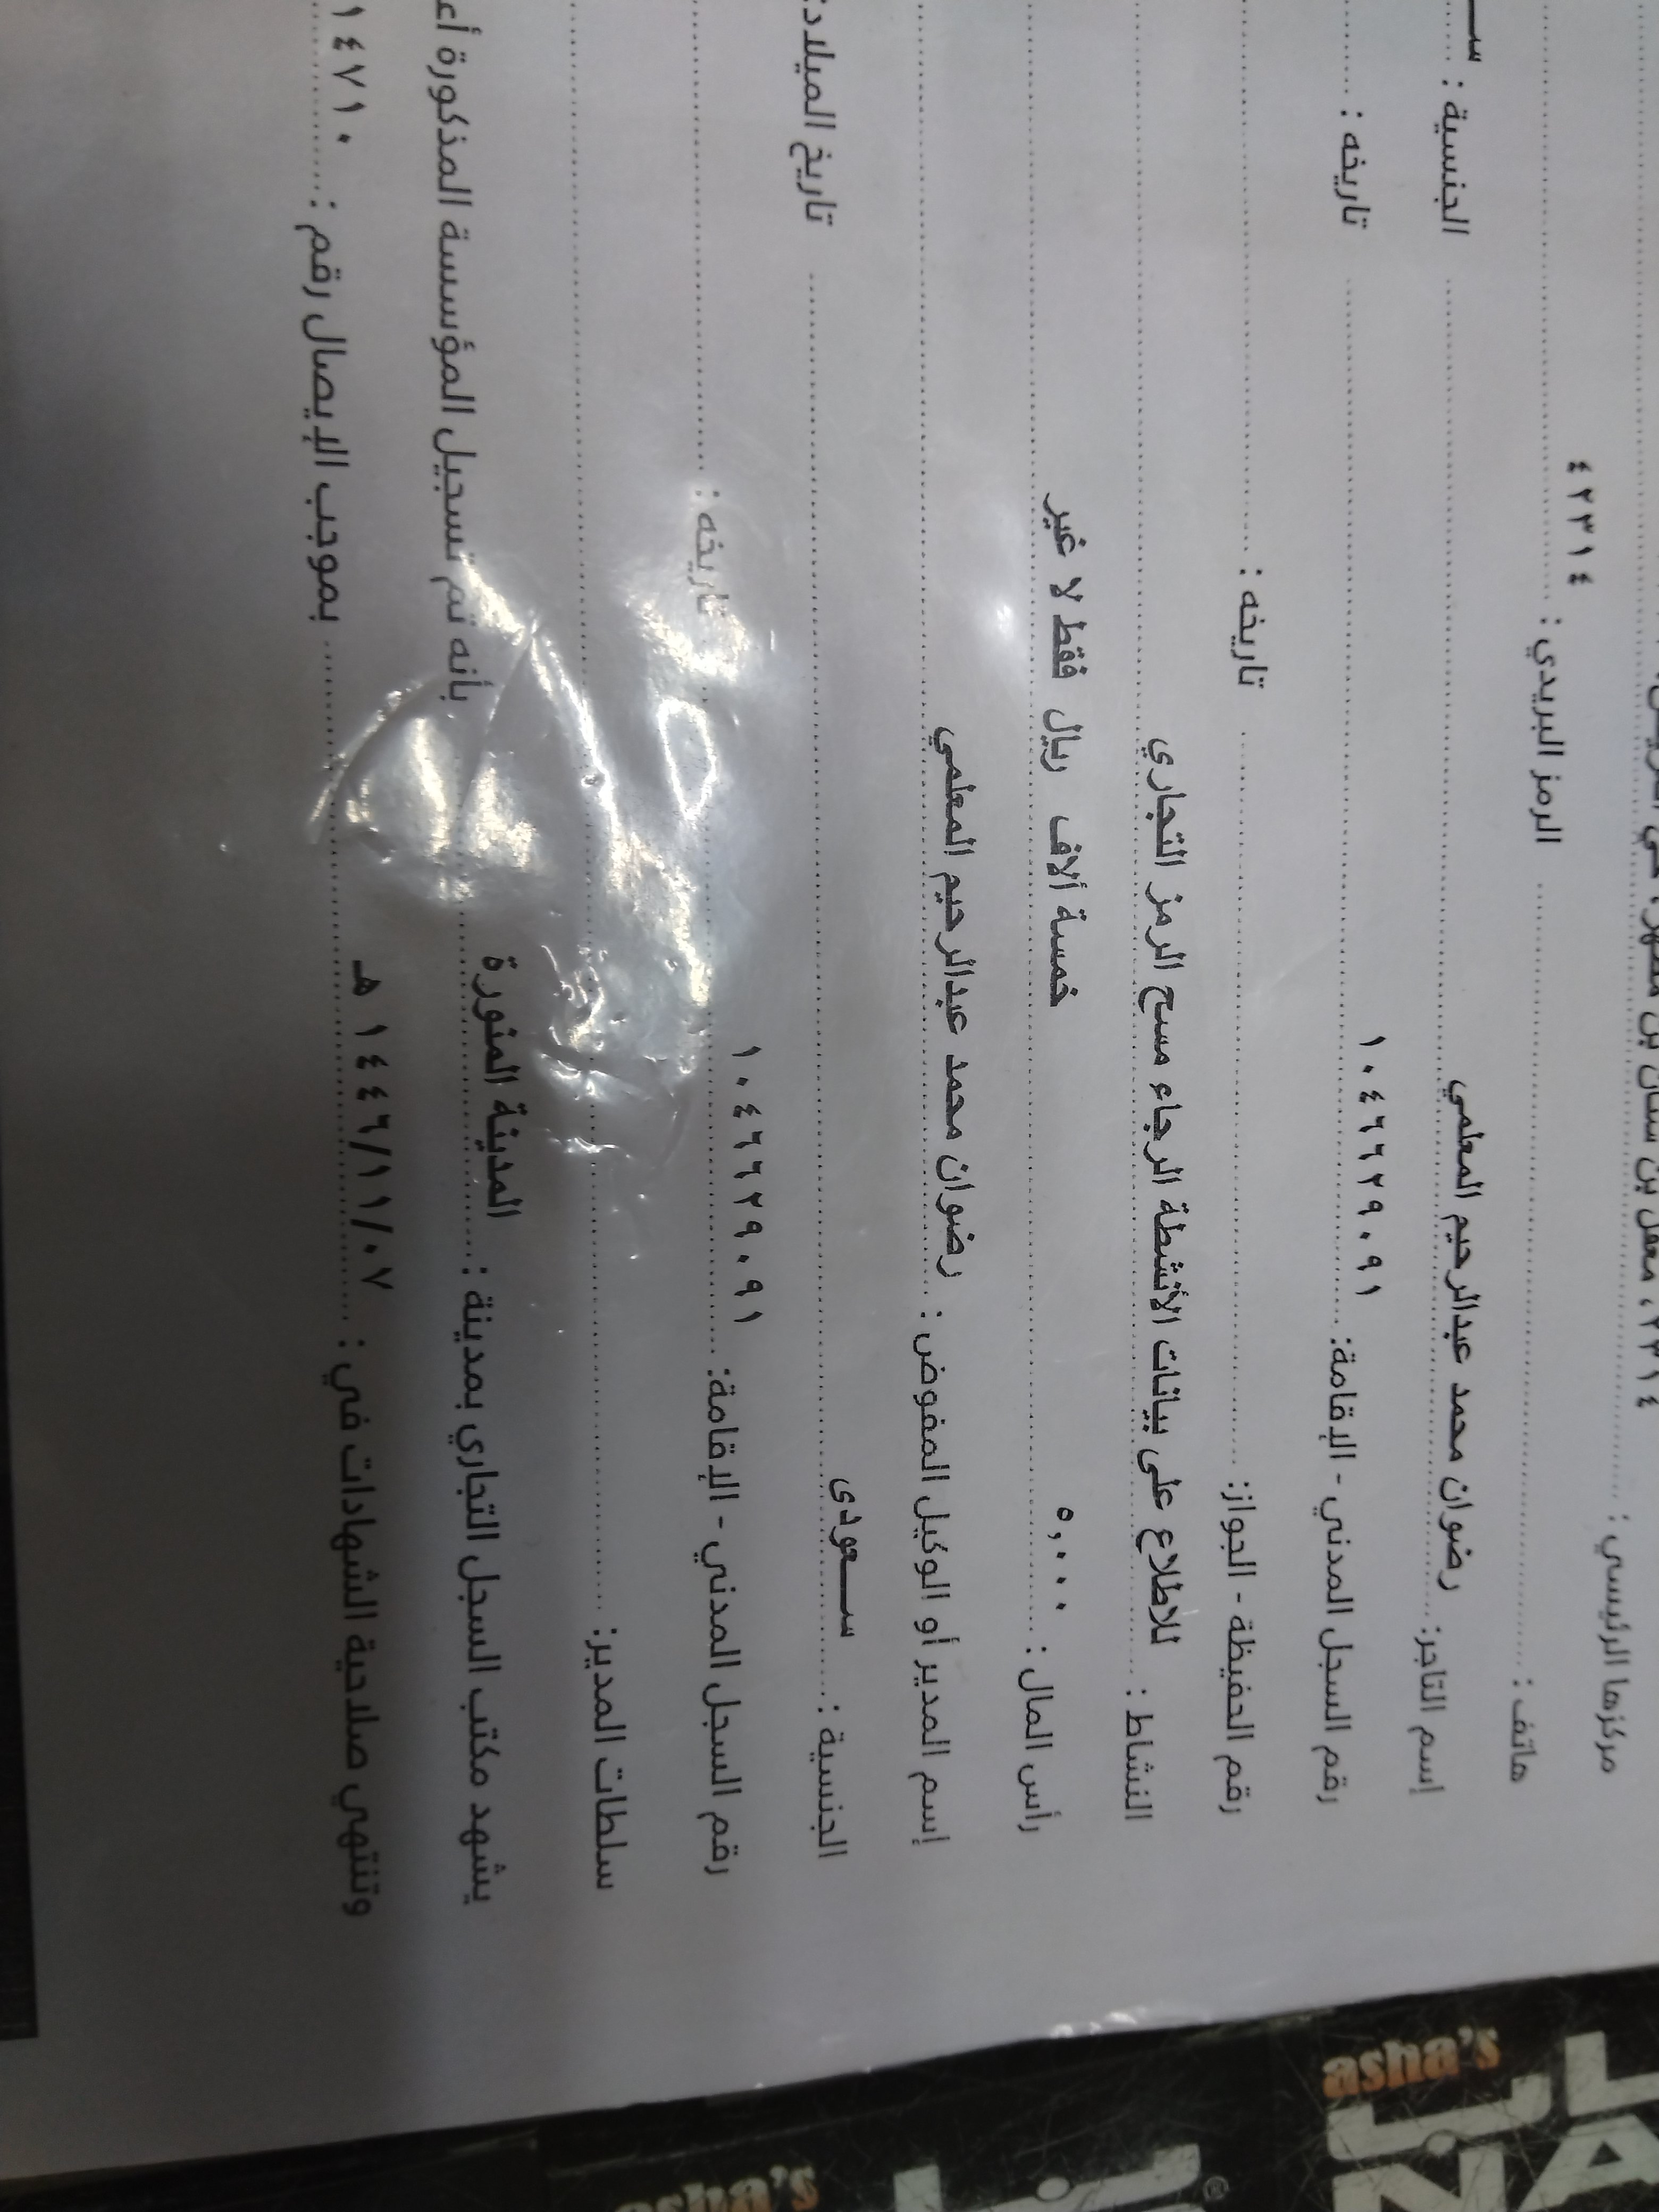 مركزها الرئيسي :
هاتف : الرمز البريدي : ٤٢٣١٤
إسم التاجر: رضوان محمد عبدالرحيم المعلمي الجنسية :
رقم السجل المدني - الإقامة: ١٠٤٦٦٢٩٠٩١ تاريخه :
رقم الحفيظة - الجواز: تاريخه :
النشاط : للاطلاع على بيانات الأنشطة الرجاء مسح الرمز التجاري
رأس المال : ٥,٠٠٠ خمسة ألاف ريال فقط لا غير
إسم المدير أو الوكيل المفوض : رضوان محمد عبدالرحيم المعلمي
الجنسية : سـعودى تاريخ
رقم السجل المدني - الإقامة: ١٠٤٦٦٢٩٠٩١ تاريخه :
سلطات المدير:
يشهد مكتب السجل التجاري بمدينة : المدينة المنورة بأنه تم تسجيل المؤسسة المذكورة
وتنتهي صلاحية الشهادات في : ١٤٤٦/١١/٠٧ هـ بموجب الإيصال رقم :
asha's
asha's